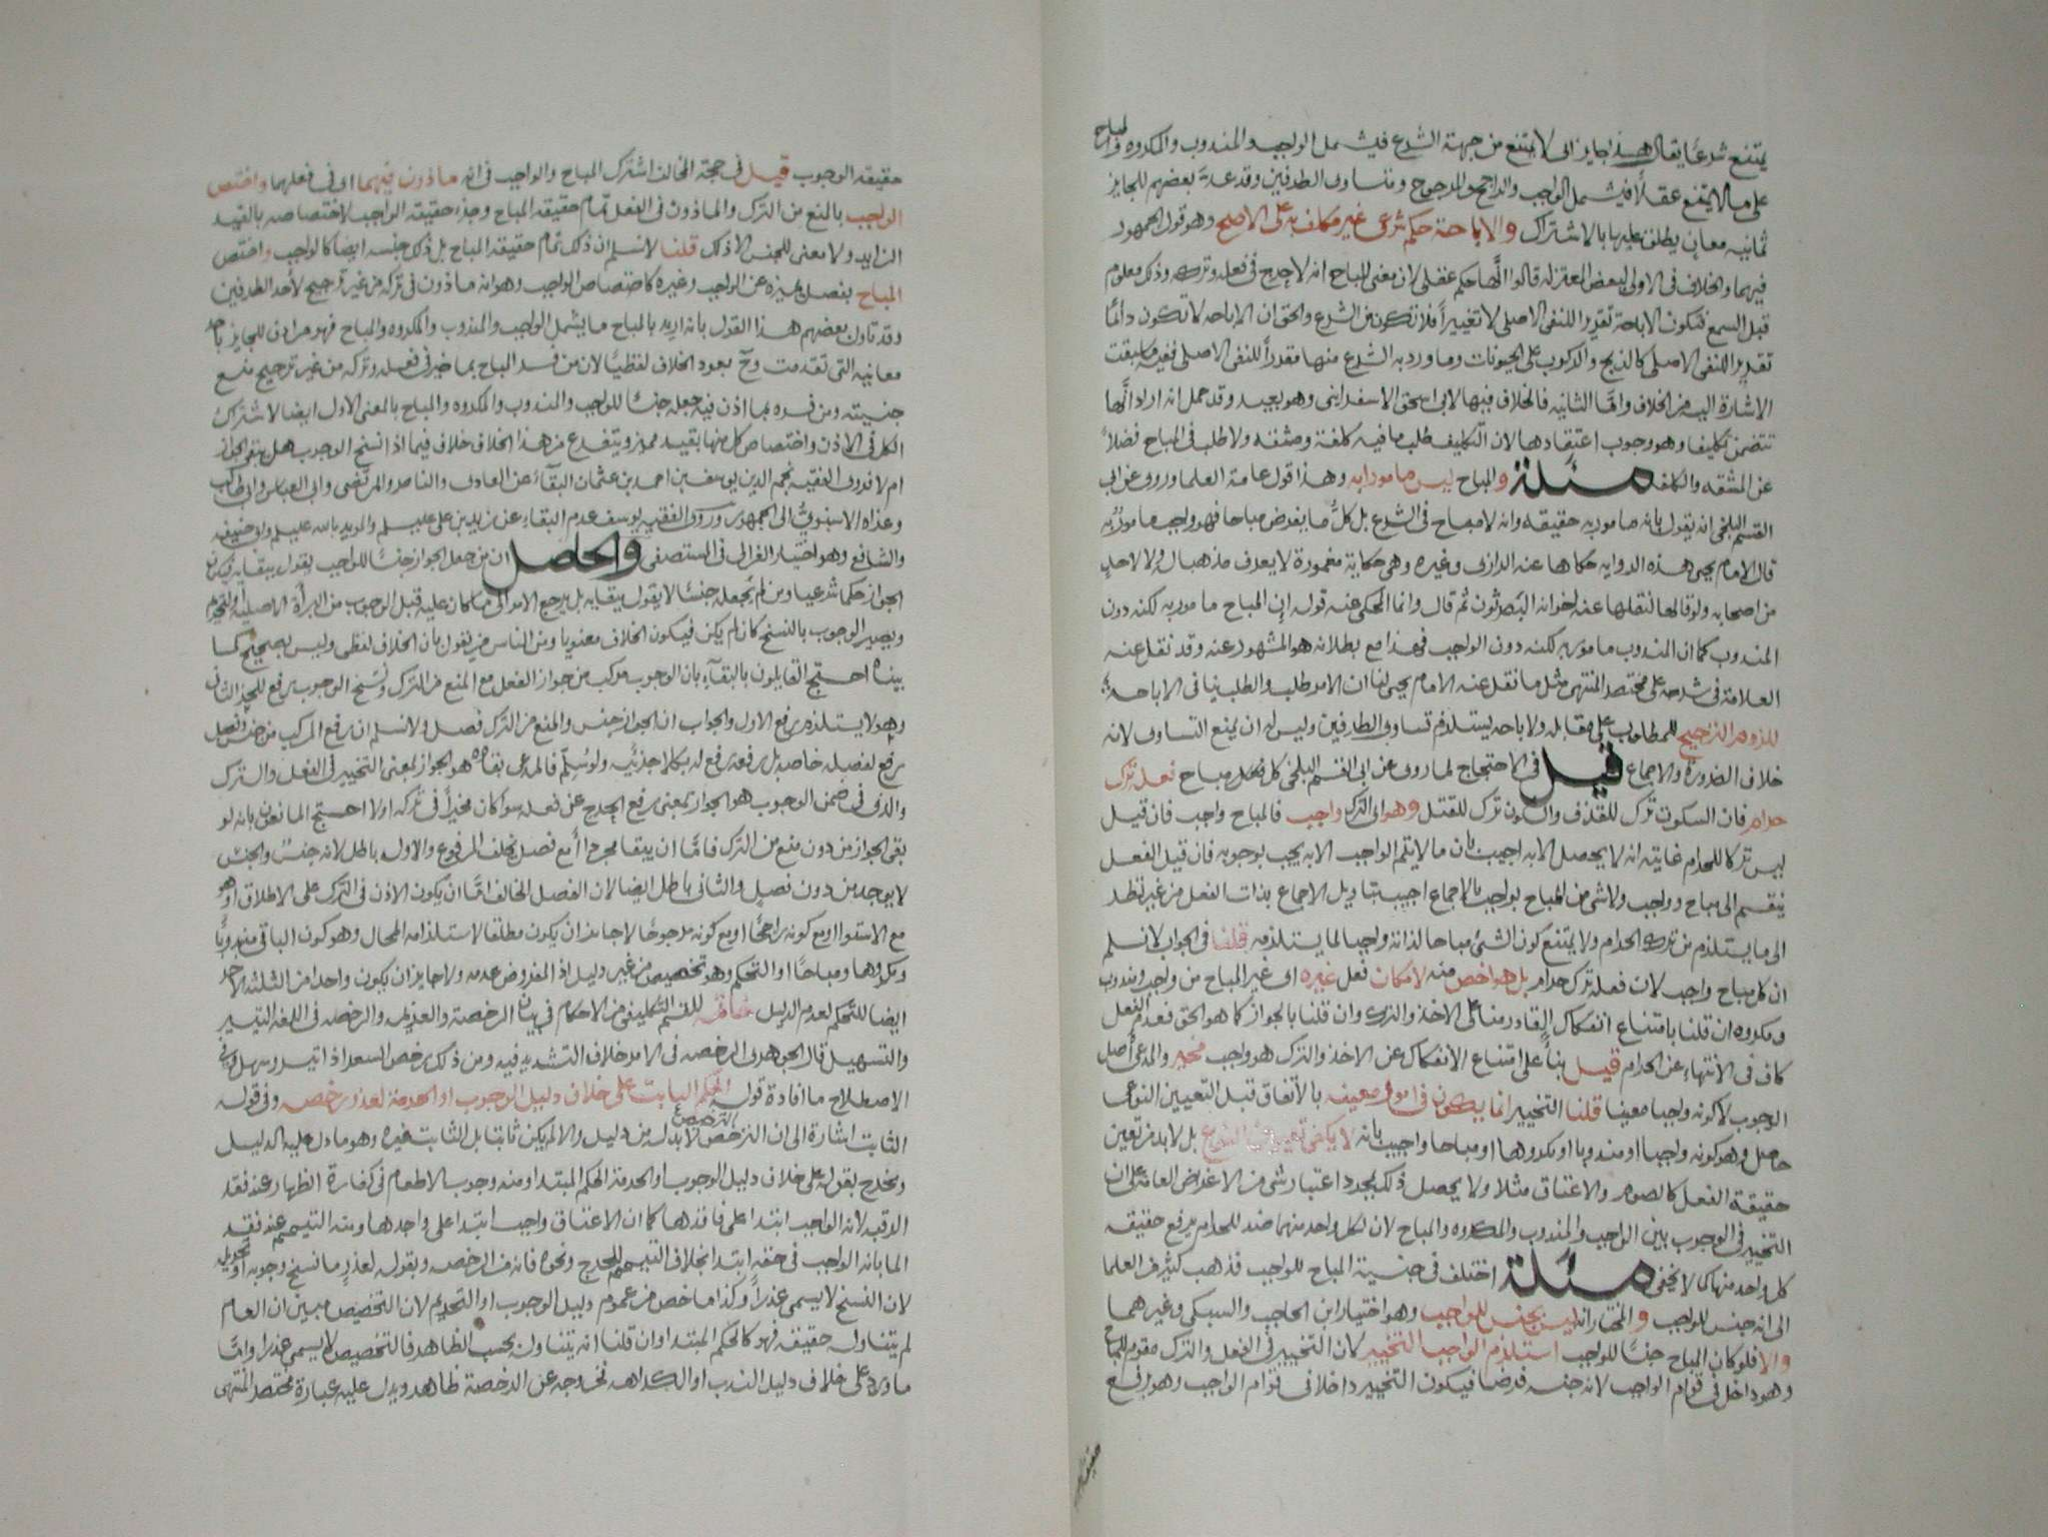 يمتنع شرعا يقال هذا جايز اي لا يمتنع من جهة الشرع فيشمل الواجب والمندوب والمكروه والمباح
على ما لا يمتنع عقلا فيشمل الواجب والراجح والمرجوح ومتساوى الطرفين وقد عد بعضهم للجايز
ثمانيه معان يطلق عليها بالاشتراك والاباحة حكم شرعي غير مكلف به على الاصح وهو قول الجمهور
فيهما والخلاف في الاولى لبعض المعتزله قالوا انها حكم عقلى لان معنى المباح انه لا حرج في فعله وتركه وذلك معلوم
قبل السمع فتكون الاباحة تقريرا للنفى الاصلى لا تغييرا فلا تكون من الشرع والحق ان الاباحه لا تكون دائما
تقريرا للنفى الاصلى كالذبح والركوب على الحيوانات وما ورد به الشرع منها مقررا للنفى الاصلى ففيه ما سبقت
الاشارة اليه من الخلاف واما الثانيه فالخلاف فيها لابى اسحق الاسفرايني وهو بعيد وقد حمل انه اراد انها
تتضمن تكليفا وهو وجوب اعتقادها لان التكليف طلب ما فيه كلفة ومشقه ولا طلب في المباح فضلا
عن المشقه والكلفه مسئلة والمباح ليس مامورا به وهذا قول عامة العلما وروى عن ابي
القسم البلخى انه يقول بانه مامور به حقيقه وانه لا مباح في الشرع بل كل ما يفرض مباحا فهو واجب مامور به
قال الامام يحيى هذه الروايه حكاها عنه الرازى وغيره وهي حكاية مغمورة لا يعرف مذهبا له ولا لاحد
من اصحابه ولو قالها لنقلها عنه اخوانه البصريون ثم قال وانما المحكى عنه قوله ان المباح مامور به لكنه دون
المندوب كما ان المندوب مامور به لكنه دون الواجب فهذا مع بطلانه هو المشهور عنه وقد نقل عنه
العلامة في شرحه على مختصر المنتهى مثل ما نقل عنه الامام يحيى لنا ان الامر طلب والطلب ينافى الاباحه
للزوم الترجيح للمطلوب على مقابله والاباحه يستلزم تساوى الطرفين وليس له ان يمنع التساوى لانه
خلاف الضرورة والاجماع قيل في الاحتجاج لما روى عن ابى القسم البلخى كل فعل مباح فعله ترك
حرام فان السكوت ترك للقذف والسكون ترك للقتل وهو اى الترك واجب فالمباح واجب فان قيل
ليس تركا للحرام غايته انه لا يحصل الا به اجيب بان ما لا يتم الواجب الا به يجب بوجوبه فان قيل الفعل
ينقسم الى مباح وواجب ولا شى من المباح بواجب بالاجماع اجيب بتاويل الاجماع بذات الفعل من غير نظر
الى ما يستلزم من ترك الحرام ولا يمتنع كون الشى مباحا لذاته واجبا لما يستلزمه قلنا في الجواب لا نسلم
ان كل مباح واجب لان فعله ترك حرام بل هو اخص منه لامكان فعل غيره اى غير المباح من واجب ومندوب
ومكروه ان قلنا بامتناع انفكاك القادر منا على الاخذ والترك وان قلنا بالجواز كما هو الحق فعدم الفعل
كاف في الانتهاء عن الحرام قيل بناء على امتناع الانفكاك عن الاخذ والترك هو واجب مخير والمدعى اصل
الوجوب لا كونه واجبا معينا قلنا التخيير انما يكون في امور معينه بالاتفاق قبل التعيين النوعى
حاصل وهو كونه واجبا او مندوبا او مكروها او مباحا واجيب بانه لا يكفى تعيين النوع بل لا بد من تعين
حقيقة الفعل كالصوم والاعتاق مثلا ولا يحصل ذلك بمجرد اعتبار شى من الاغراض العامه على ان
التخيير في الوجوب بين الواجب والمندوب والمكروه والمباح لان لكل واحد منهما ضد للحرام يرفع حقيقه
كل واحد منها كما لا يخفى مسئلة اختلف في جنسية المباح للواجب فذهب كثير من العلما
الى انه جنس للواجب والمختار انه ليس بجنس للواجب وهو اختيار ابن الحاجب والسبكى وغيرهما
والا فلو كان المباح جنسا للواجب استلزم الواجب التخيير لان التخيير في الفعل والترك مقوم للمباح
وهو داخل في قوام الواجب لانه جنسه فرضا فيكون التخيير داخلا في قوام الواجب وهو يرفع
حقيقه
حقيقه الوجوب قيل في حجة المخالف اشترك المباح والواجب في انه ماذون فيهما اى في فعلهما واختص
الواجب بالمنع من الترك والماذون في الفعل تمام حقيقه المباح وجزء حقيقه الواجب لاختصاصه بالقيد
الزايد ولا معنى للجنس الا ذلك قلنا لا نسلم ان ذلك تمام حقيقه المباح بل ذلك جنسه ايضا كالواجب واختص
المباح بفصل يميزه عن الواجب وغيره كاختصاص الواجب وهو انه ماذون في تركه من غير ترجيح لاحد الطرفين
وقد تاول بعضهم هذا القول بانه اريد بالمباح ما يشمل الواجب والمندوب والمكروه والمباح فهو مرادف للجايز باحد
معانيه التى تقدمت وح يعود الخلاف لفظيا لان من فسر المباح بما خير في فعله وتركه من غير ترجيح منع
جنسيته ومن فسره بما اذن فيه جعله جنسا للواجب والمندوب والمكروه والمباح بالمعنى الاول ايضا لاشتراك
الكل في الاذن واختصاص كل منها بقيد مميز ويتفرع من هذا الخلاف خلاف فيما اذا نسخ الوجوب هل يبقى الجواز
ام لا فروى الفقيه نجم الدين يوسف بن احمد بن عثمان البقاء عن الهادى والناصر والمرتضى وابى العباس وابى طالب
وعزاه الاسنوى الى الجمهور وروى الفقيه يوسف عدم البقاء عن زيد بن على عليلم والمويد بالله عليلم وابى حنيفه
والشافعى وهو اختيار الغزالى في المستصفى والحاصل ان من جعل الجواز جنسا للواجب يقول ببقايه فيكون
الجواز حكما شرعيا ومن لم يجعله جنسا لا يقول ببقايه بل يرجع الامر الى ما كان عليه قبل الوجوب من البراءة الاصليه او التحريم
ويصير الوجوب بالنسخ كان لم يكن فيكون الخلاف معنويا ومن الناس من يقول بان الخلاف لفظى وليس بصحيح كما
بيناه احتج القايلون بالبقاء بان الوجوب مركب من جواز الفعل مع المنع من الترك ونسخ الوجوب يرفع للجزء الثانى
وهو لا يستلزم رفع الاول والجواب ان الجواز جنس والمنع من الترك فصل ولا نسلم ان رفع المركب من جنس وفصل
رفع لفصله خاصه بل رفعه رفع له بكلا جزئيه ولو سلم فالمدعى بقاه هو الجواز بمعنى التخيير في الفعل والترك
والذى في ضمن الوجوب هو الجواز بمعنى رفع الحرج عن فعله سوا كان مخيرا في تركه اولا احتج المانعون بانه لو
بقى الجواز من دون منع من الترك فاما ان يبقا مجردا او مع فصل يخلف المرفوع والاول باطل لانه جنس والجنس
لا يوجد من دون فصل والثانى باطل ايضا لان الفصل الخالف اما ان يكون الاذن في الترك على الاطلاق او هو
مع الاستوا او مع كونه راجحا او مع كونه مرجوحا لا جايز ان يكون مطلقا لاستلزامه المحال وهو كون الباقى مندوبا
ومكروها ومباحا او التحكم وهو تخصيص من غير دليل اذ المفروض عدمه ولا جايز ان يكون واحدا من الثلثه الاخر
ايضا للتحكم لعدم الدليل خاتمة للقسم التكليفى من الاحكام في بيان الرخصة والعزيمه والرخصه في اللغه التيسير
والتسهيل قال الجوهرى الرخصه في الامر خلاف التشديد فيه ومن ذلك رخص السعر اذا تيسر وسهل وفى
الاصطلاح ما افادة قوله الحكم الثابت على خلاف دليل الوجوب او الحرمة لعذر رخصه وفي قوله
الثابت اشارة الى ان الترخص لا بد له من دليل والا لم يكن ثابتا بل الثابت غيره وهو ما دل عليه الدليل
الترخيص
وتخرج بقوله على خلاف دليل الوجوب او الحرمة الحكم المبتدا ومنه وجوب الاطعام في كفارة الظهار عند فقد
الرقبه لانه الواجب ابتدا على فاقدها كما ان الاعتاق واجب ابتدا على واجدها ومنه التيمم عند فقد
الما بانه الواجب في حقه ابتدا بخلاف التيمم للجرح ونحوه فانه من الرخصه وبقوله لعذر ما نسخ وجوبه او تحريمه
لان النسخ لا يسمى عذرا وكذا ما خص من عموم دليل الوجوب او التحريم لان التخصيص مبين ان العام
لم يتناوله حقيقه فهو كالحكم المبتدا وان قلنا انه يتناوله بحسب الظاهر فالتخصيص لا يسمى عذرا واما
ما ورد على خلاف دليل الندب او الكراهه فخروجه عن الرخصة ظاهر ويدل عليه عبارة مختصر المنتهى